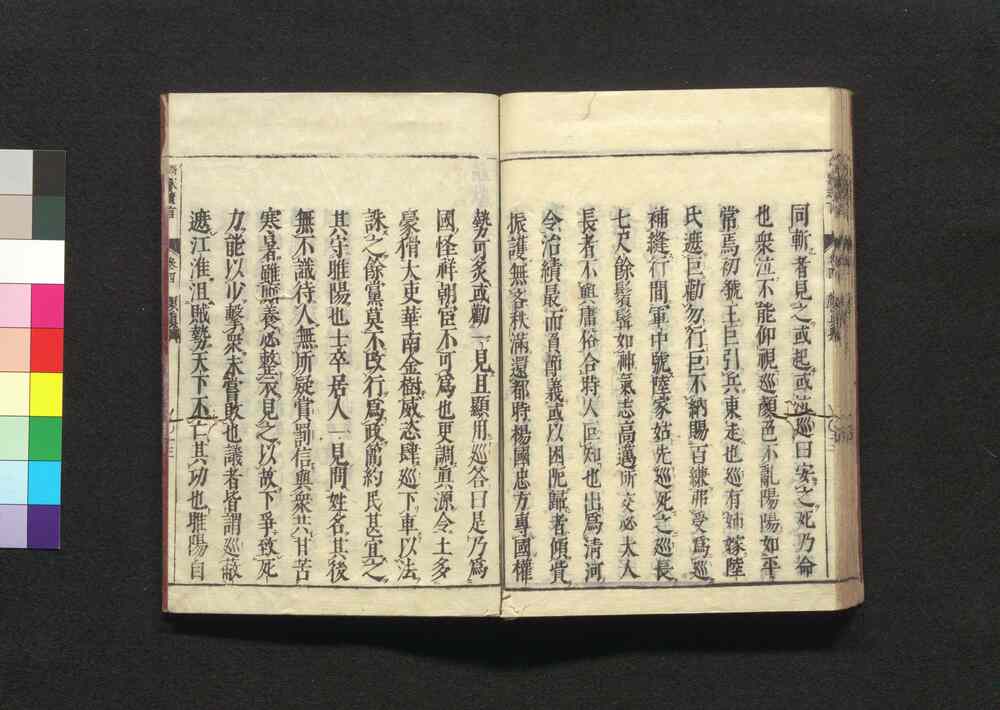 同斬者見之或起或泣巡曰安之死乃命
也衆泣不能仰視巡顏色不亂陽陽如平
常焉初虢王巨引兵東走也巡有姉嫁陸
氏遮巨勸勿行巨不納賜百縑弗受爲巡
補縫行間軍中號陸家姑先巡死之巡長
七尺餘鬚髯如神氣志高邁所交必大人
長者不與庸俗合時人叵知也出爲清河
令治績最而負節義或以困阨歸者傾貲
振護無吝秩滿還都時楊國忠方專國權
勢可炙或勸一見且顯用巡答曰是乃爲
國怪祥朝宦不可爲也更調眞源令土多
豪猾大吏華南金樹威恣肆巡下車以法
誅之餘黨莫不改行爲政簡約民甚宜之
其守睢陽也士卒居人一見問姓名其後
無不識待人無所疑賞罰信與衆共甘苦
寒暑雖廝養必整衣見之以故下爭致死
力能以少擊衆未嘗敗也議者皆謂巡蔽
遮江淮沮賊勢天下不亡其功也睢陽自
卷四